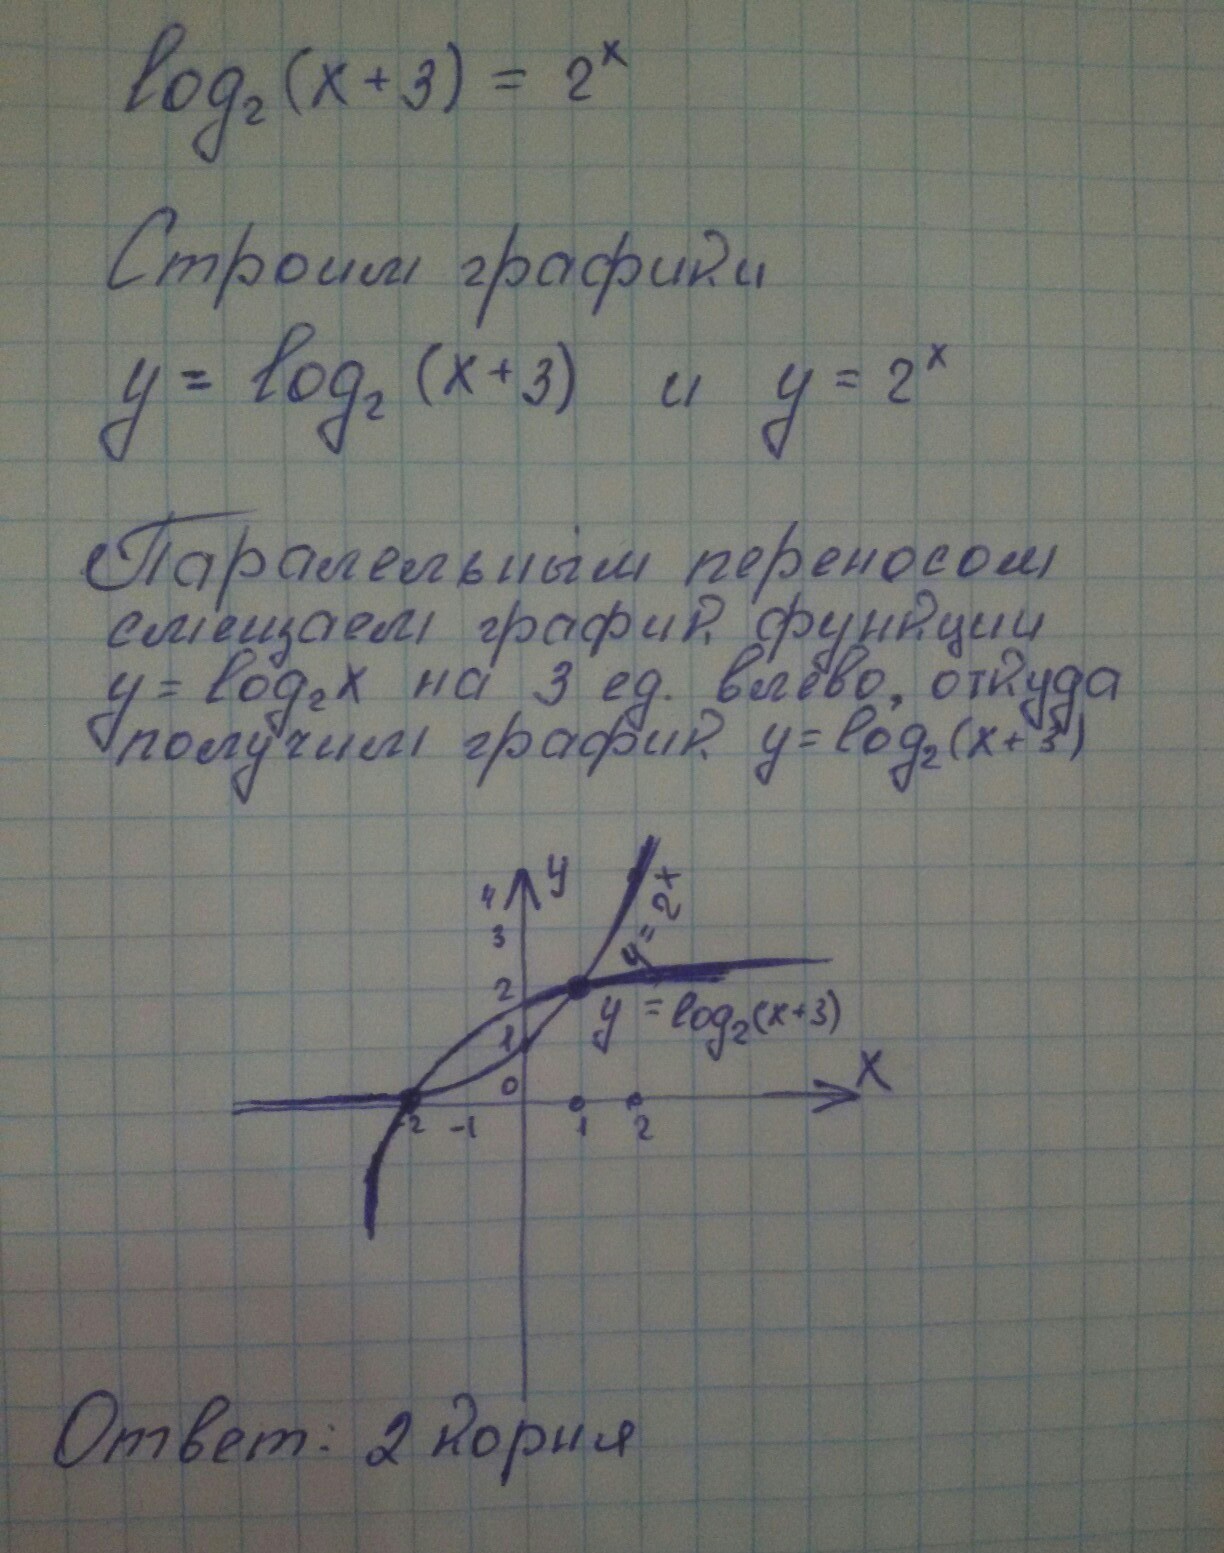 log₂(x+3) = 2ˣ
Строим графики
y = log₂(x+3) и y = 2ˣ
Паралельным переносом
смещаем график функции
y = log₂x на 3 ед. влево, откуда
получим график y = log₂(x+3)
4 y
3
y = 2ˣ
2
y = log₂(x+3)
1
0 x
-2 -1 1 2
Ответ: 2 корня